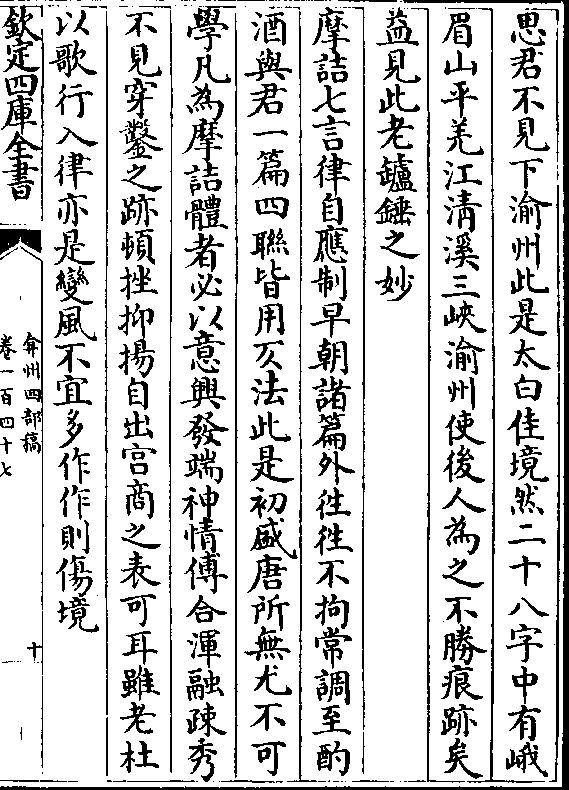 思君不見下渝州此是太白佳境然二十八字中有峨
眉山平羌江清溪三峽渝州使後人為之不勝痕跡矣
益見此老鑪錘之妙
摩詰七言律自應制早朝諸篇外徃徃不拘常調至酌
酒與君一篇四聨皆用仄法此是初盛唐所無尤不可
學凡為摩詰體者必以意興發端神情傅合渾融疎秀
不見穿鑿之跡頓挫抑揚自出宫商之表可耳雖老杜
以歌行入律亦是變風不宜多作作則傷境
欽定四庫全書
弇州四部稿
卷一百四十七
十